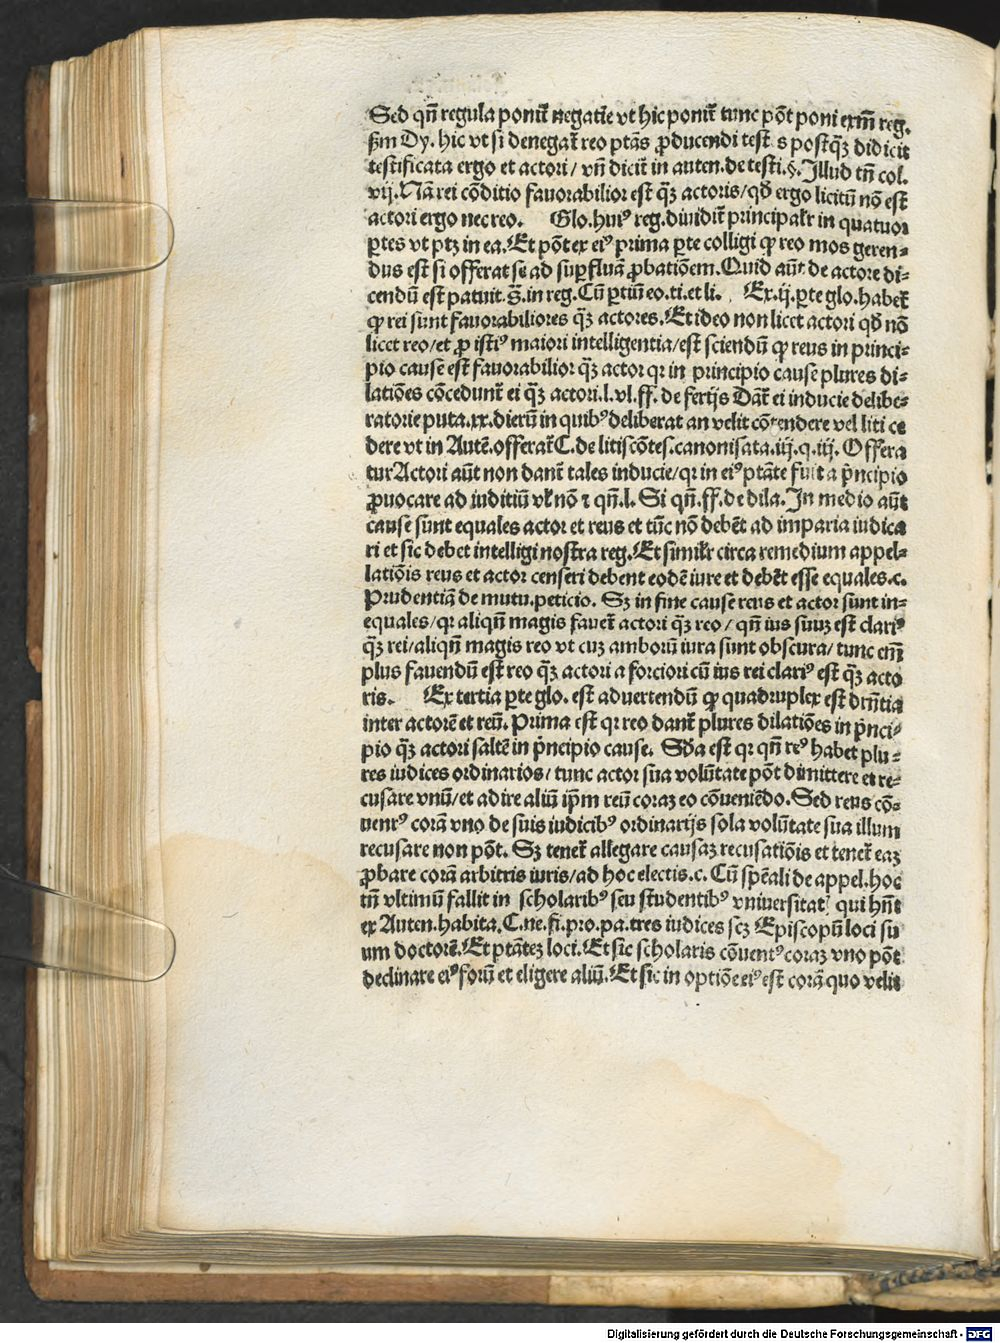 Sed qn̄ regula ponit̃ negatiẽ vt hic ponit̃ tunc pōt poni exm̄ reg.
ẜm Dy. hic vt si denegat̃ reo ptãs ꝓducendi test s postqȝ̃ didicit
testificata ergo et actori / vn̄ dicit̃ in auten. de testi. §. Illud tn̄ col.
vij. Nã rei cõditio fauorabilior est qȝ̃ actoris / qđ ergo licitũ nõ est
actori ergo nec reo. Glo. huiꝰ reg. diuidit̃ principalr̃ in quatuor
ꝑtes vt ptȝ in ea. Et pōt ex eiꝰ prima ꝑte colligi ꝙ reo mos geren-
dus est si offerat se ad suꝑfluã ꝓbatiõem. Quid aūt de actore di-
cendũ est patuit. s̄. in reg. Cũ ꝑtiũ eo. ti. et li. Ex. ij. ꝑte glo. habet̃
ꝙ rei sunt fauorabiliores qȝ̃ actores. Et ideo non licet actori qđ nõ
licet reo / et ꝓ istiꝰ maiori intelligentia / est sciendũ ꝙ reus in princi-
pio cause est fauorabilior qȝ̃ actor qr in principio cause plures di-
latiões cõcedunt̃ ei qȝ̃ actori. l. vl. ff. de ferijs Dat̃ ei inducie delibe-
ratorie puta. xx. dierũ in quibꝰ deliberat an velit cõtendere vel liti ce
dere vt in Autẽ. offerat̃ C. de litiscõtes. canonisata. iij. q. iij. Offera
tur Actori aūt non dant̃ tales inducie / qr in eiꝰ ptãte fuit a p̃ncipio
ꝓuocare ad iuditiũ vl̃ nõ ⁊ qn̄. l. Si qn̄. ff. de dila. In medio aūt
cause sunt equales actor et reus et tũc nõ debẽt ad imparia iudica
ri et sic debet intelligi nostra reg. Et similr̃ circa remedium appel-
latiõis reus et actor censeri debent eodẽ iure et debẽt esse equales. c.
Prudentiã de mutu. peticio. Sȝ in fine cause reus et actor sunt in-
equales / qr aliqn̄ magis fauet̃ actori qȝ̃ reo / qn̄ ius suuȝ est clariꝰ
qȝ̃ rei / aliqn̄ magis reo vt cuȝ amborũ iura sunt obscura / tunc em̄
plus fauendũ est reo qȝ̃ actori a forciori cũ ius rei clariꝰ est qȝ̃ acto
ris. Ex tertia ꝑte glo. est aduertendũ ꝙ quadruplex est drn̄tia
inter actorẽ et reũ. Prima est qr reo dant̃ plures dilatiões in p̃nci-
pio qȝ̃ actori saltẽ in p̃ncipio cause. Scđa est qr qn̄ reꝰ habet plu-
res iudices ordinarios / tunc actor sua volũtate pōt dimittere et re-
cusare vnũ / et adire aliũ ip̄m reũ coraȝ eo cõueniẽdo. Sed reus cõ-
uentꝰ corã vno de suis iudicibꝰ ordinarijs sola volũtate sua illum
recusare non pōt. Sȝ tenet̃ allegare causaȝ recusatiõis et tenet̃ eaȝ
ꝓbare corã arbitris iuris / ad hoc electis. c. Cũ spẽali de appel. hoc
tn̄ vltimũ fallit in scholaribꝰ seu studentibꝰ vniuersitatꝭ qui hn̄t
ex Auten. habita. C. ne. fi. pro. pa. tres iudices scȝ Episcopũ loci su
um doctorẽ. Et ptãteȝ loci. Et sic scholaris cõuentꝰ coraȝ vno pōt
declinare eiꝰ forũ et eligere aliũ. Et sic in optiõe eiꝰ est corã quo velit
Digitalisierung gefördert durch die Deutsche Forschungsgemeinschaft - DFG